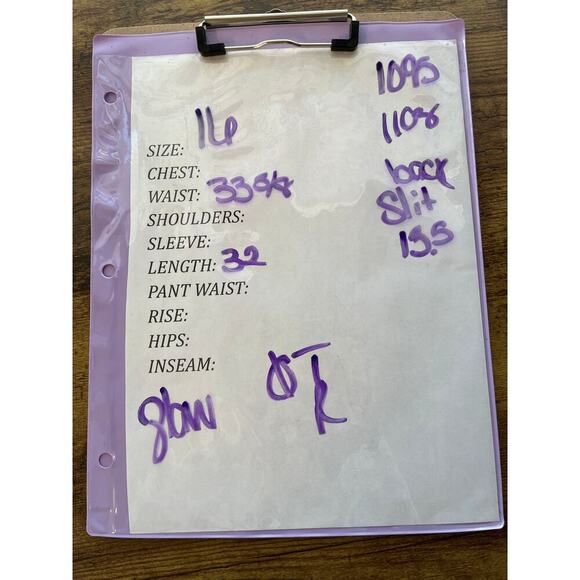 1095
1108
SIZE: 16
CHEST:
back
WAIST: 33
slit
SHOULDERS:
SLEEVE:
15.5
LENGTH: 32
PANT WAIST:
RISE:
HIPS:
INSEAM: